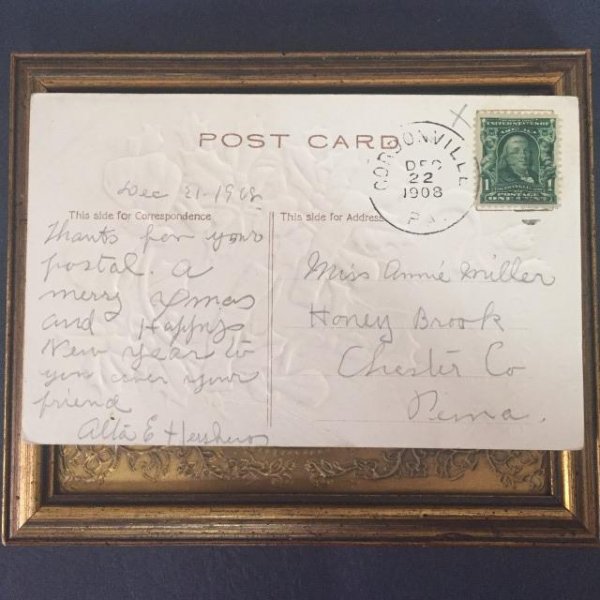 POST CARD
GORDONVILLE
DEC
22
1908
PA.
UNITED STATES OF
1 1
POSTAGE
ONE CENT
Dec 21-1908
This side for Correspondence
This side for Address
Thanks for your
postal. A
merry Xmas
and Happy
New Year to
you ever your
friend
Alta E Hershey
Miss Annie Miller
Honey Brook
Chester Co
Penna.